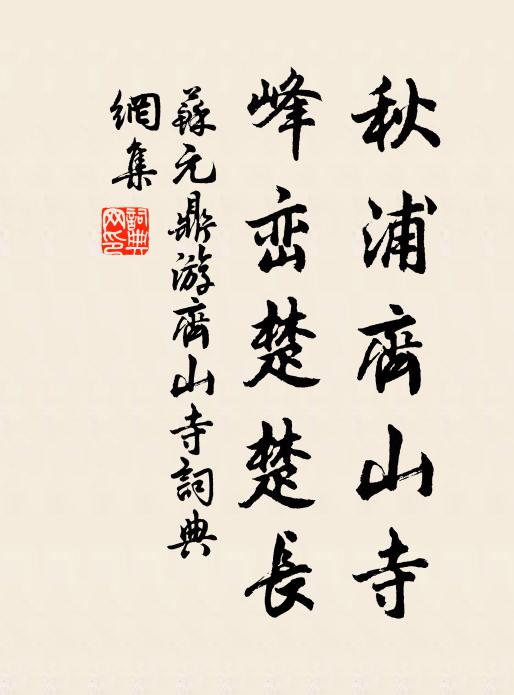 秋浦齊山寺
峰峦楚楚長
蘇元鼎游齊山寺詞典
網集
詞典网印